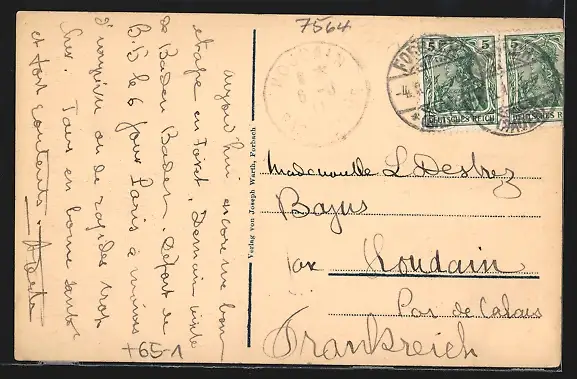 7564
aujourd'hui encore une bonne
etape en Foret. Demain visite
de Baden Baden. Départ de
B.B le 6 pour Paris à moins
d'imprévu ou de rapides trop
cher. Tous en bonne santé
et fort contents.
+65-1
Verlag von Joseph Warth, Forbach
HOUDAIN
5 5
DEUTSCHES REICH
5
DEUTSCHES R
Mademoiselle L Destrez
Bajus
par Houdain
Pas de Calais
Frankreich